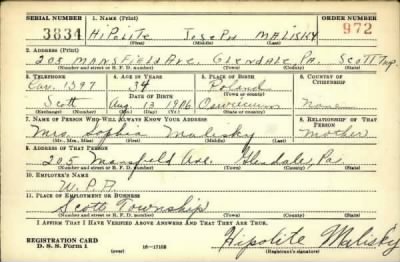 SERIAL NUMBER 1. NAME (Print) ORDER NUMBER
3834 HIPOLITE JOSEPH MALISKY 972
(First) (Middle) (Last)
2. ADDRESS (Print)
205 MANSFIELD AVE. GLENDALE PA. SCOTT TWP.
(Number and street or R. F. D. number) (Town) (County) (State)
3. TELEPHONE 4. AGE IN YEARS 5. PLACE OF BIRTH 6. COUNTRY OF CITIZENSHIP
Car. 1397 34 Poland
DATE OF BIRTH (Town or county)
Scott Aug. 13 1906 None
(Exchange) (Number) (Mo.) (Day) (Yr.) (State or country)
7. NAME OF PERSON WHO WILL ALWAYS KNOW YOUR ADDRESS 8. RELATIONSHIP OF THAT PERSON
Mrs. Sophia Malisky Mother
(Mr., Mrs., Miss) (First) (Middle) (Last)
9. ADDRESS OF THAT PERSON
205 Mansfield Ave. Glendale, Pa.
(Number and street or R. F. D. number) (Town) (County) (State)
10. EMPLOYER'S NAME
W.P.A.
11. PLACE OF EMPLOYMENT OR BUSINESS
Scott Township
(Number and street or R. F. D. number) (Town) (County) (State)
I AFFIRM THAT I HAVE VERIFIED ABOVE ANSWERS AND THAT THEY ARE TRUE.
REGISTRATION CARD
D. S. S. Form 1 (over) Hipolite Malisky
(Registrant's signature)